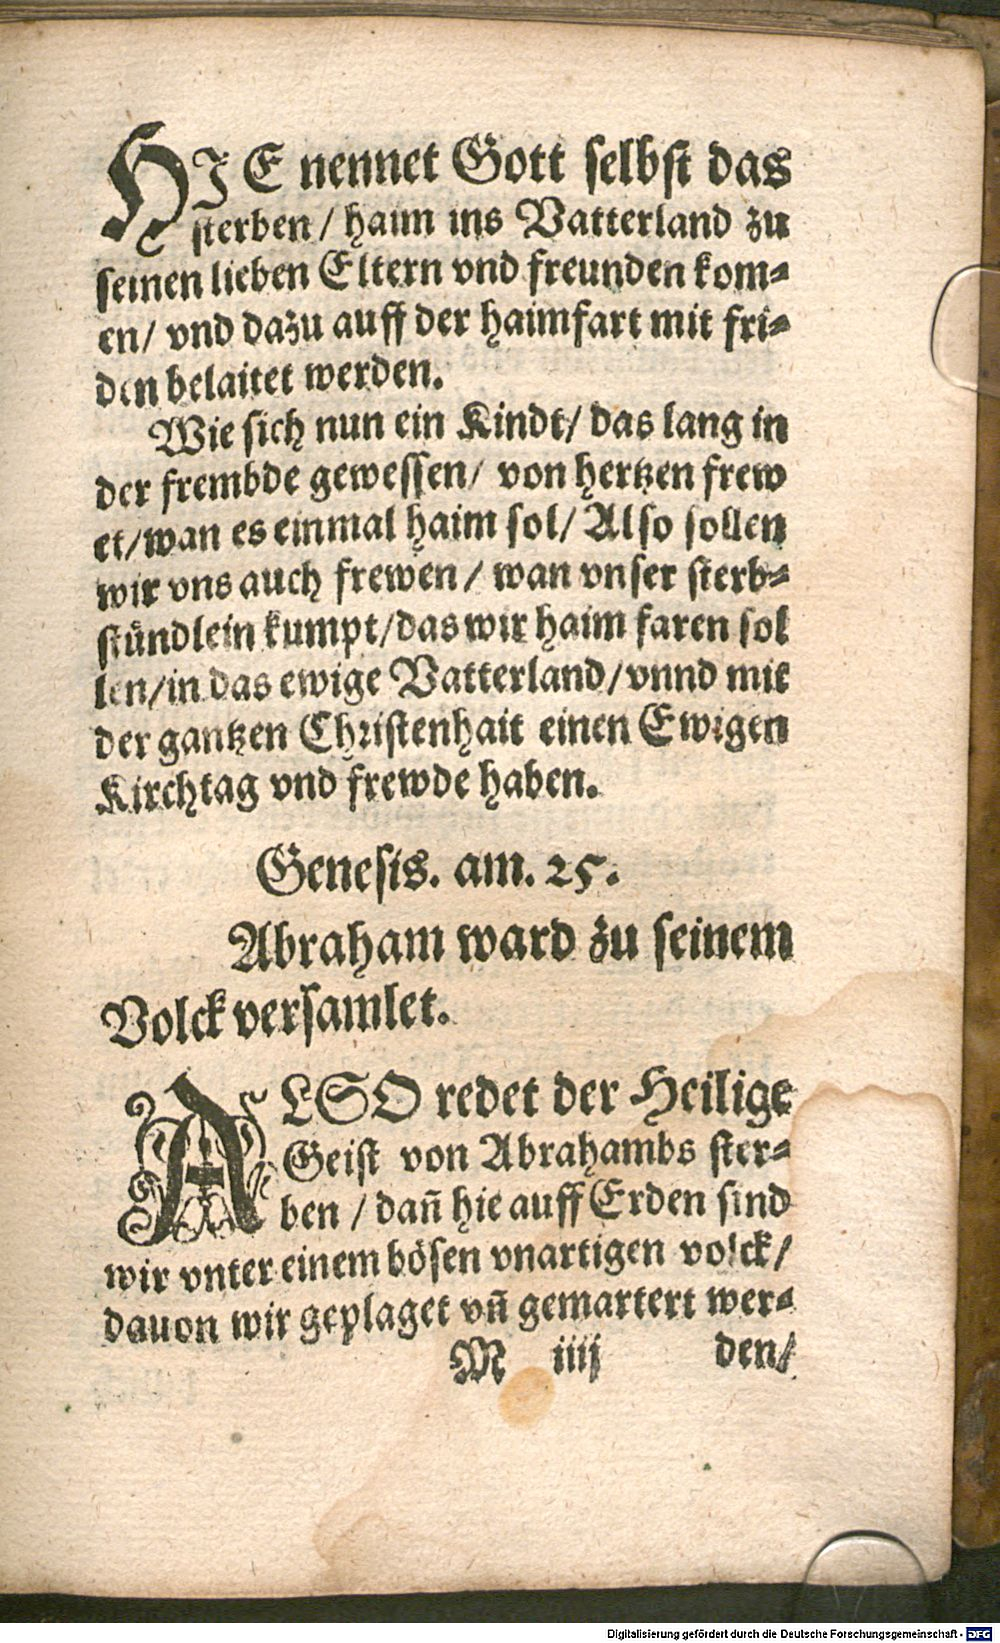 HIE nennet Gott selbst das
sterben / haim ins Vatterland zu
seinen lieben Eltern vnd freunden kom⸗
en / vnd dazu auff der haimfart mit fri⸗
den belaitet werden.
Wie sich nun ein Kindt / das lang in
der frembde gewessen / von hertzen frew
et / wan es einmal haim sol / Also sollen
wir vns auch frewen / wan vnser sterb⸗
stündlein kumpt / das wir haim faren sol
len / in das ewige Vatterland / vnnd mit
der gantzen Christenhait einen Ewigen
Kirchtag vnd frewde haben.
Genesis. am. 25.
Abraham ward zu seinem
Volck versamlet.
ALSO redet der Heilige
Geist von Abrahambs ster⸗
ben / dan̄ hie auff Erden sind
wir vnter einem bösen vnartigen volck /
dauon wir geplaget vn̄ gemartert wer⸗
M iiij den /
Digitalisierung gefördert durch die Deutsche Forschungsgemeinschaft - DFG